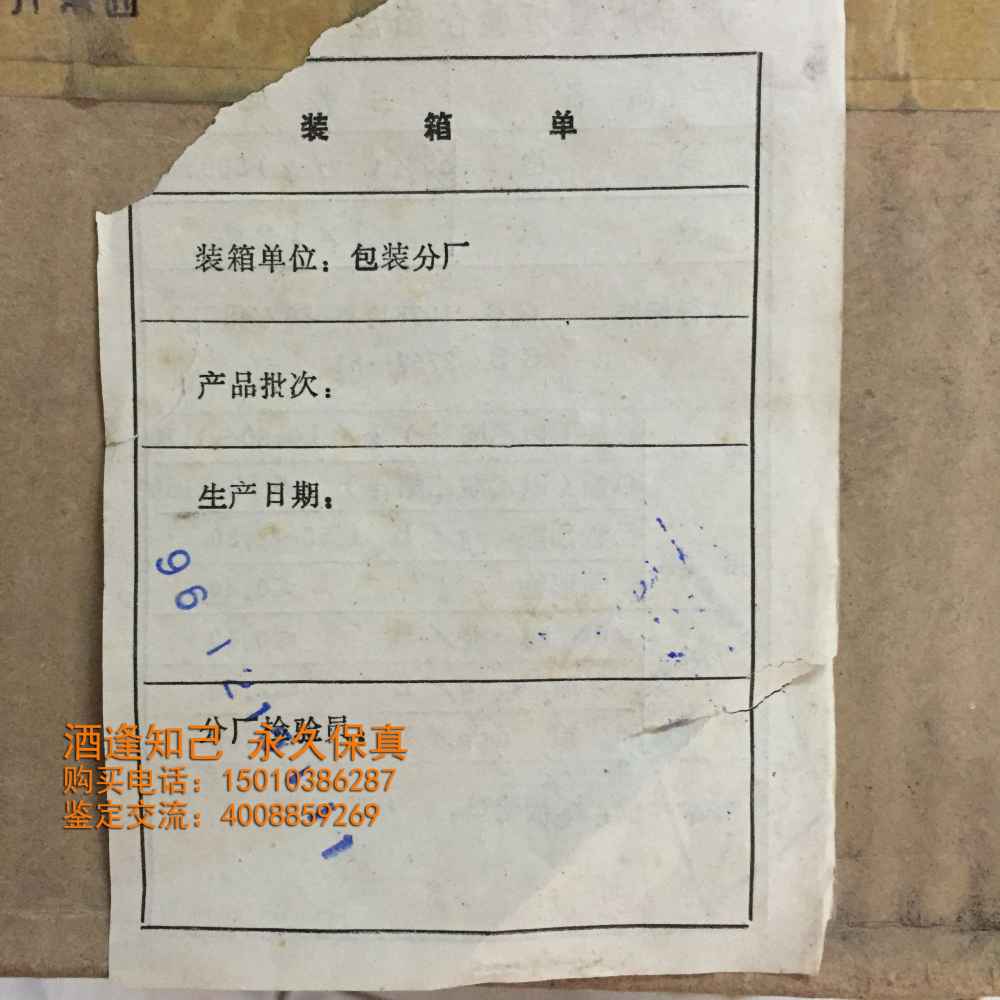 装 箱 单
装箱单位：包装分厂
产品批次：
生产日期：
96 1 2
分厂检验员
酒逢知己 永久保真
购买电话：15010386287
鉴定交流：4008859269